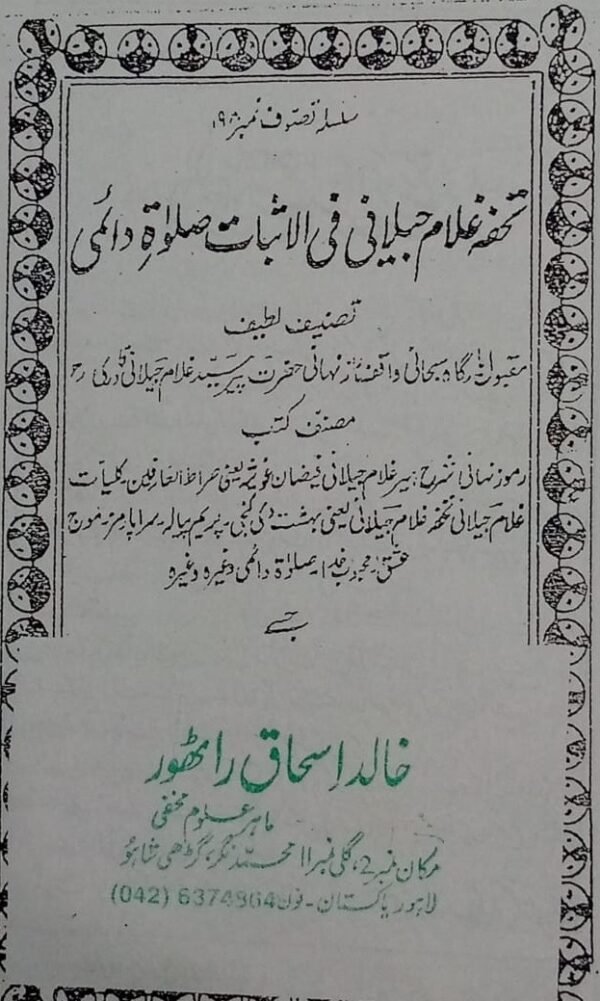 سلسلہ تصوف نمبر ۱۹۸
تحفہ غلام جیلانی فی الاثبات صلوٰۃِ دائمی
تصنیف لطیف
مقبول بارگاہ سبحانی واقف راز نہانی حضرت پیر سید غلام جیلانی قادری رح
مصنف کتب
رموز نہانی شرح ہیر غلام جیلانی فیضان غوثیہ یعنی صراط العارفین۔ کلیات
غلام جیلانی تحفہ غلام جیلانی یعنی بہشت دی کنجی۔ پریم پیالہ۔ سراپا رمز۔ موج
عشق۔ محبوب خدا۔ صلوٰۃ دائمی وغیرہ وغیرہ
جسے
خالد اسحاق راٹھور
ماہر علوم مخفی
مکان نمبر 2، گلی نمبر 11 محمد نگر، گڑھی شاہو
لاہور پاکستان۔ فون 6374864 (042)